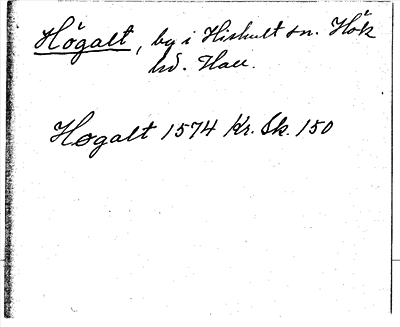 Högalt, by i Hishult sn. Hök
hd. Hall.
Hogalt 1574 Kr. Sk. 150